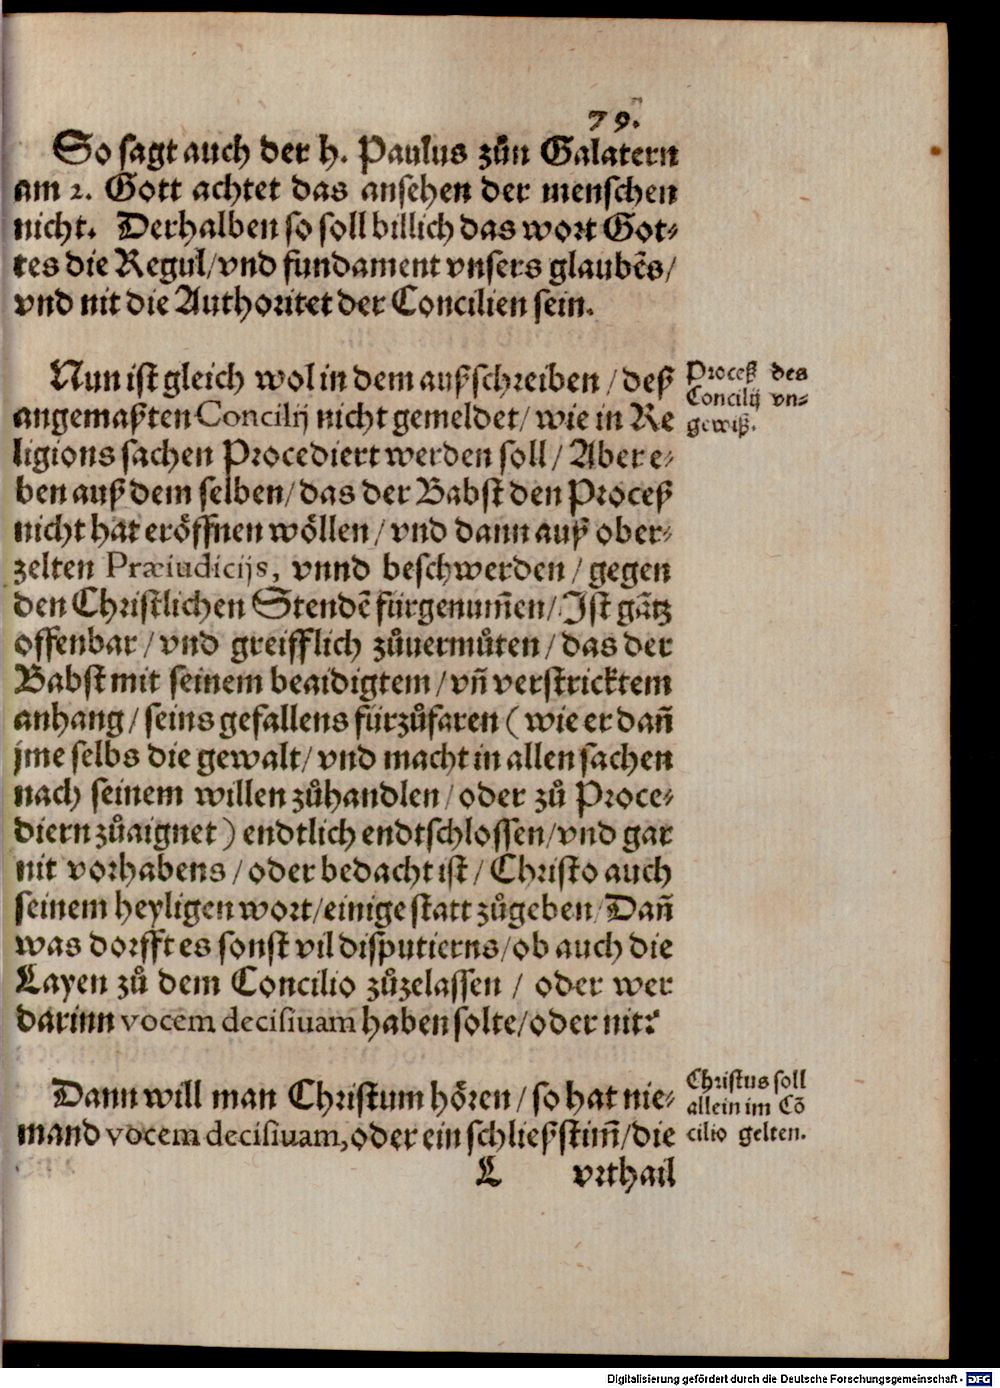 79.
So sagt auch der h. Paulus zůn Galatern
am 2. Gott achtet das ansehen der menschen
nicht. Derhalben so soll billich das wort Got⸗
tes die Regul/vnd fundament vnsers glaubẽs/
vnd nit die Authoritet der Concilien sein.
Nun ist gleich wol in dem außschreiben/deß
angemaßten Concilij nicht gemeldet/wie in Re
ligions sachen Procediert werden soll/Aber e⸗
ben auß dem selben/das der Babst den Proceß
nicht hat eröffnen wöllen/vnd dann auß ober⸗
zelten Præiudicijs, vnnd beschwerden/gegen
den Christlichen Stendẽ fürgenum̃en/Ist gãtz
offenbar/vnd greifflich zůuermůten/das der
Babst mit seinem beaidigtem/vñ verstricktem
anhang/seins gefallens fürzůfaren (wie er dañ
jme selbs die gewalt/vnd macht in allen sachen
nach seinem willen zůhandlen/oder zů Proce⸗
diern zůaignet) endtlich endtschlossen/vnd gar
nit vorhabens/oder bedacht ist/Christo auch
seinem heyligen wort/einige statt zůgeben/Dañ
was dorfft es sonst vil disputierns/ob auch die
Layen zů dem Concilio zůzelassen/oder wer
darinn vocem decisiuam haben solte/oder nit?
Proceß des
Concilij vn⸗
gewiß.
Dann will man Christum hören/so hat nie⸗
mand vocem decisiuam, oder ein schließstim̃/die
Christus soll
allein im Cõ
cilio gelten.
L vrthail
Digitalisierung gefördert durch die Deutsche Forschungsgemeinschaft - DFG